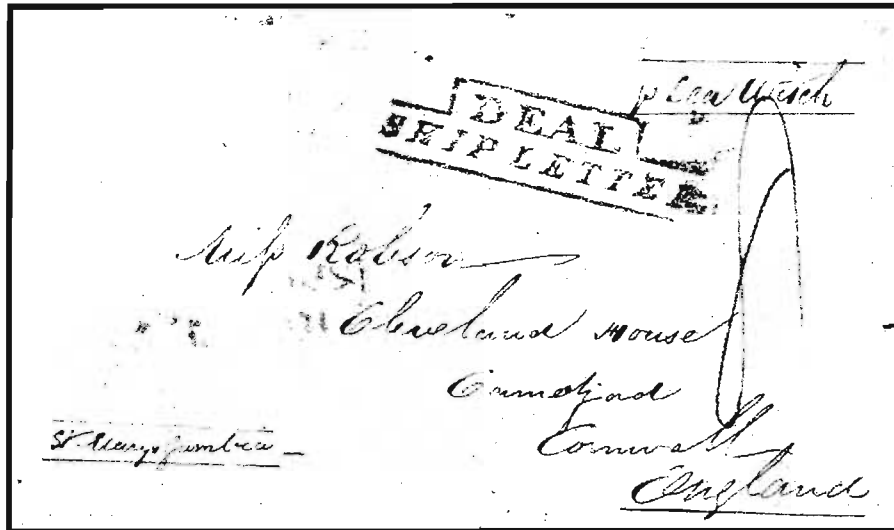 p Sea Witch
DEAL
SHIP LETTER
Miss Robson
Cleveland House
Camelford
Cornwall
England
St. Marys Gambia